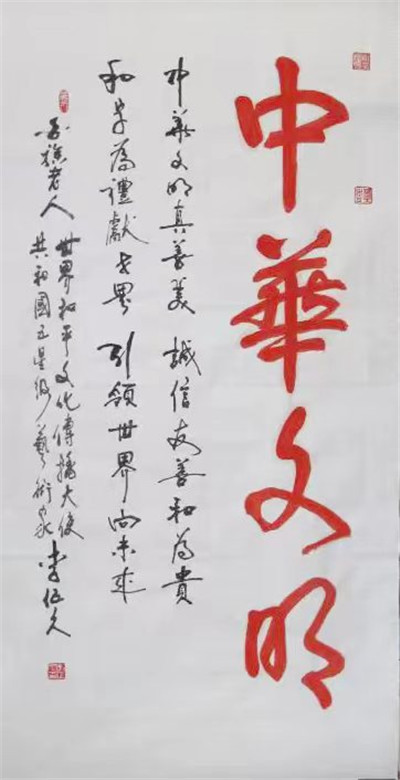 中華文明
中華文明真善美 誠信友善和為貴
和字為禮獻世界 引領世界向未來
老人 世界和平文化傳播大使
共和國五星級藝術家 李伍久